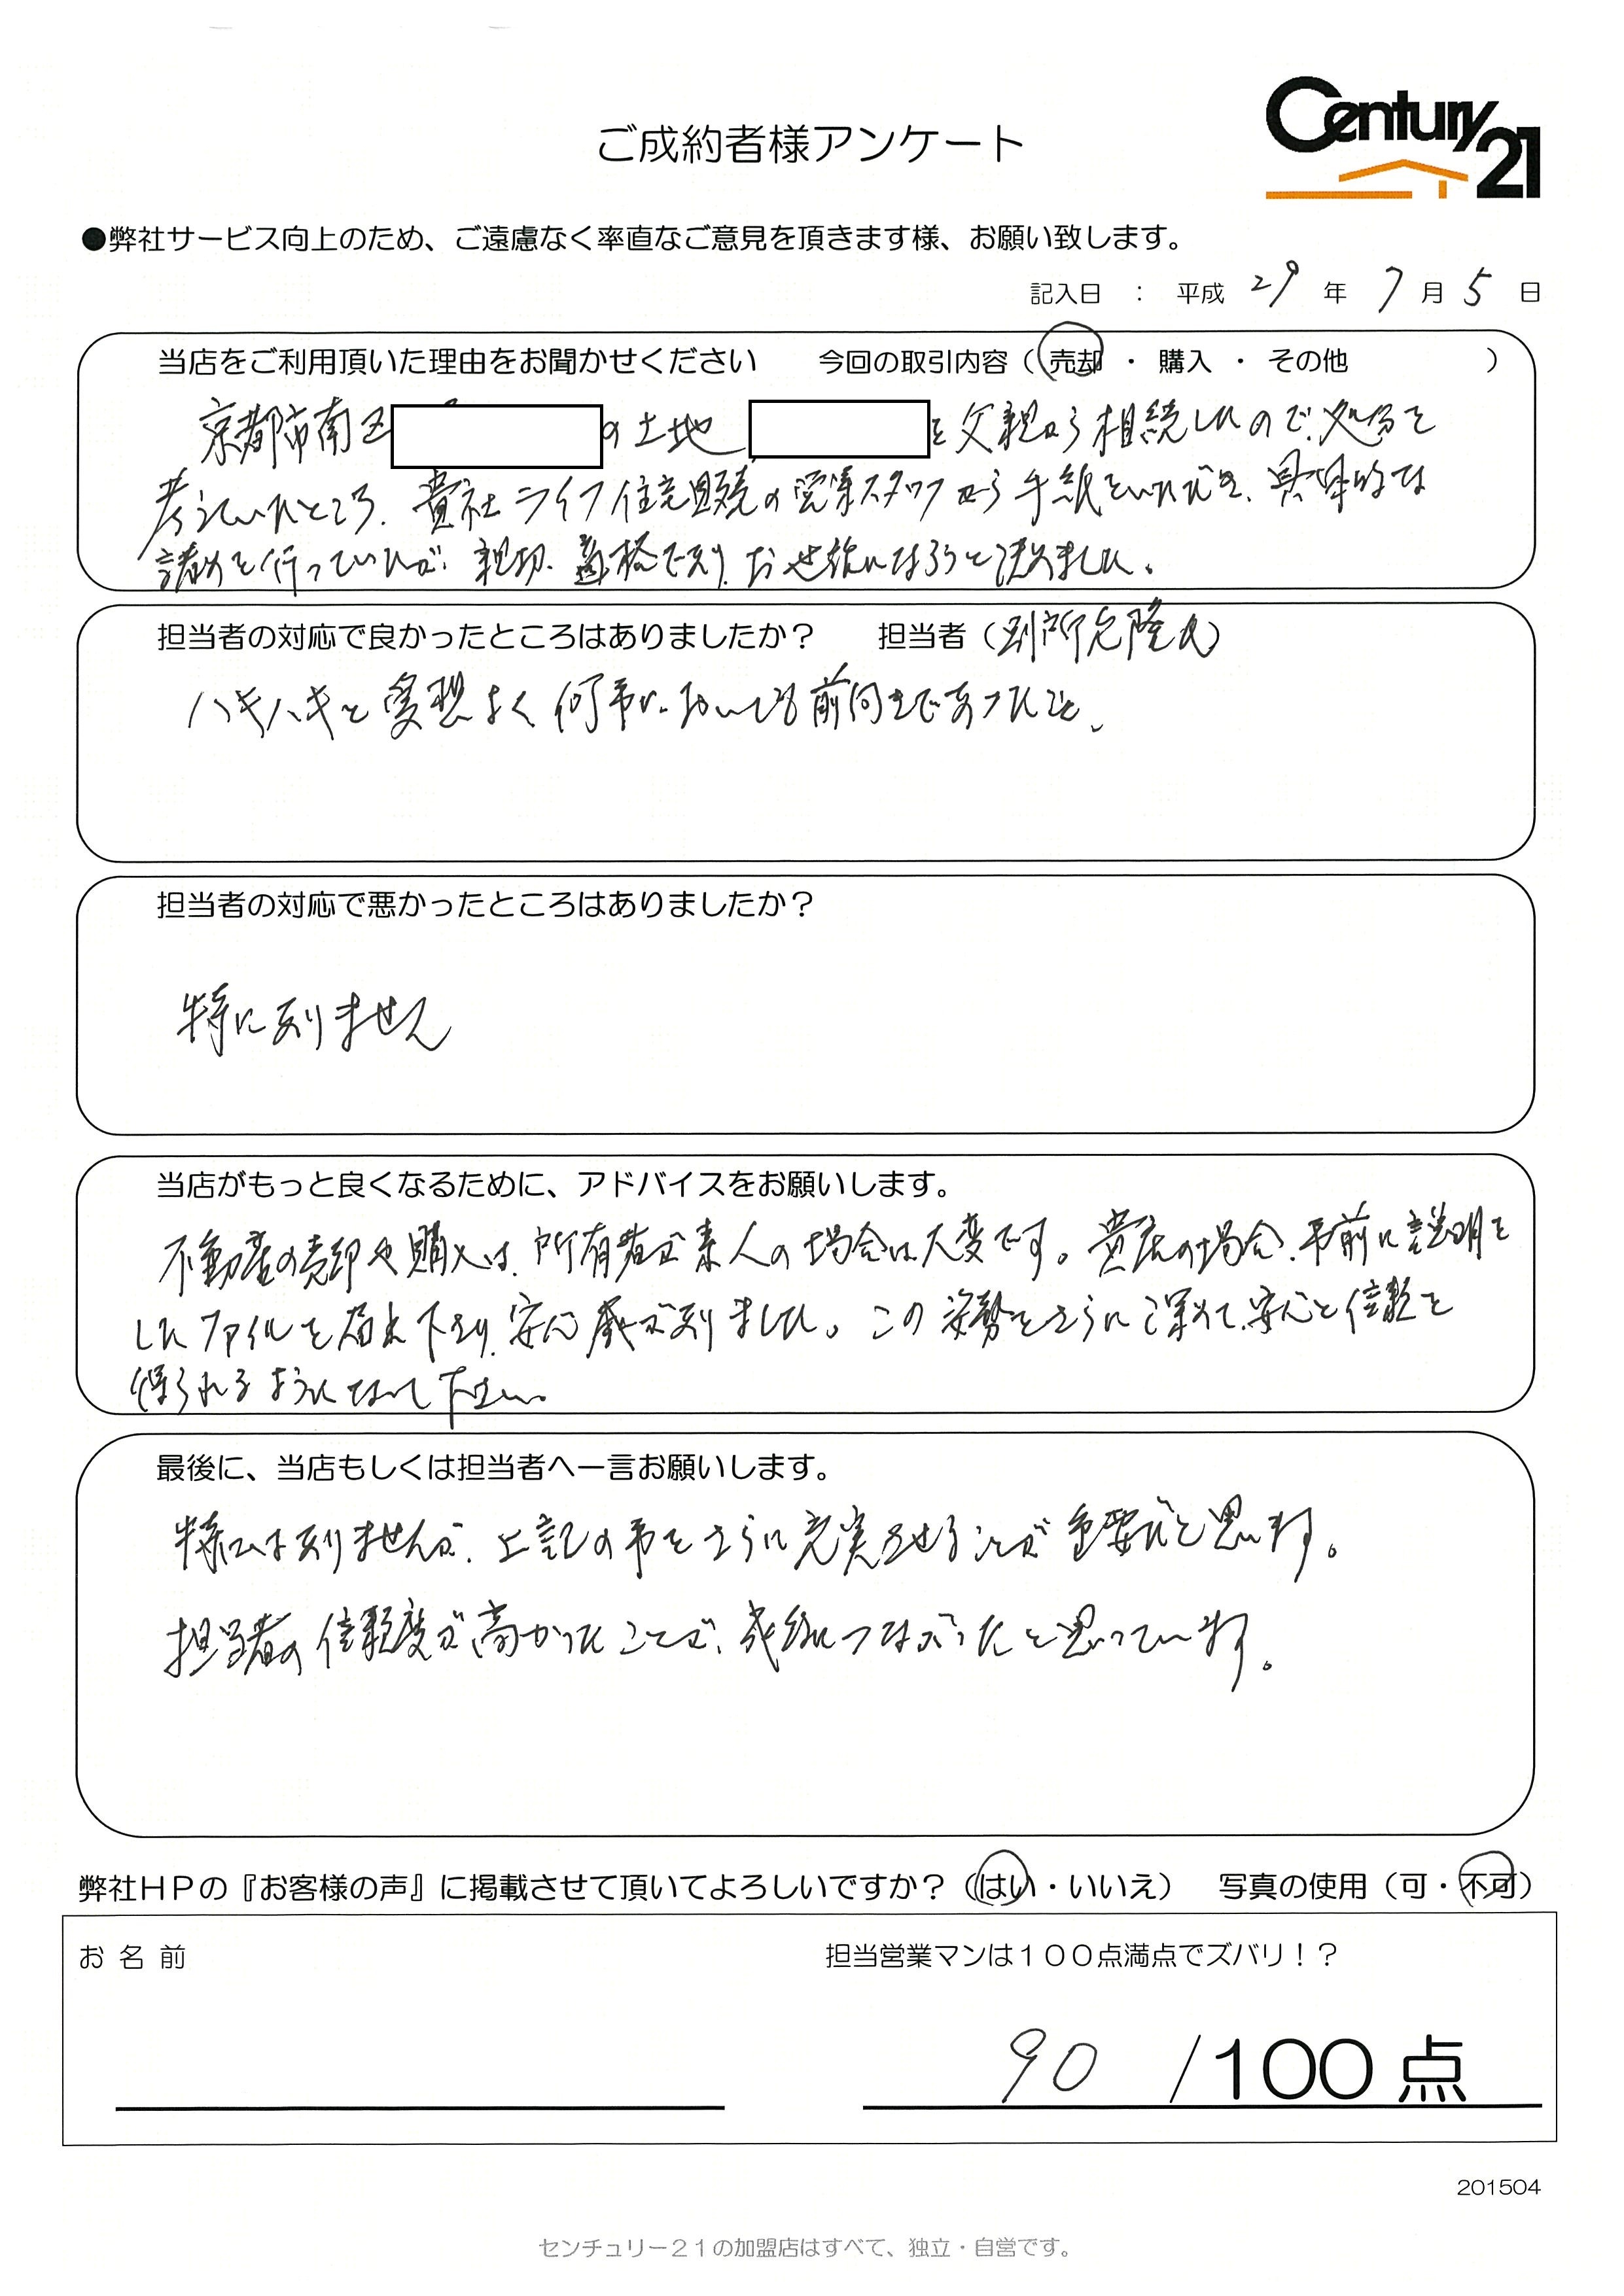 Century 21
ご成約者様アンケート
●弊社サービス向上のため、ご遠慮なく率直なご意見を頂きます様、お願い致します。
記入日 : 平成 29 年 7 月 5 日
当店をご利用頂いた理由をお聞かせください 今回の取引内容(売却・購入・その他 )
京都市南区 の土地 を父親から相続したので、処分を
考えていたところ、貴社ライフ住宅販売の営業スタッフから手紙をいただき、具体的な
詰めを行っていたが、親切、適格で有り、お世話になろうと決めました。
担当者の対応で良かったところはありましたか? 担当者(別所 隆氏)
ハキハキと愛想よく何事においても前向きであったこと、
担当者の対応で悪かったところはありましたか?
特に有りません
当店がもっと良くなるために、アドバイスをお願いします。
不動産の売却や購入は、所有者が素人の場合は大変です。貴店の場合、事前に説明を
したファイルを届け下さり、安心感が有りました。この姿勢をさらに深めて、安心と信頼を
得られるようになって下さい。
最後に、当店もしくは担当者へ一言お願いします。
特には有りませんが、上記の事をさらに充実させることが重要だと思います。
担当者の信頼度が高かったことが、成約につながったと思っています。
弊社HPの『お客様の声』に掲載させて頂いてよろしいですか?(はい・いいえ) 写真の使用(可・不可)
お名前 担当営業マンは100点満点でズバリ!?
90 /100点
201504
センチュリー21の加盟店はすべて、独立・自営です。